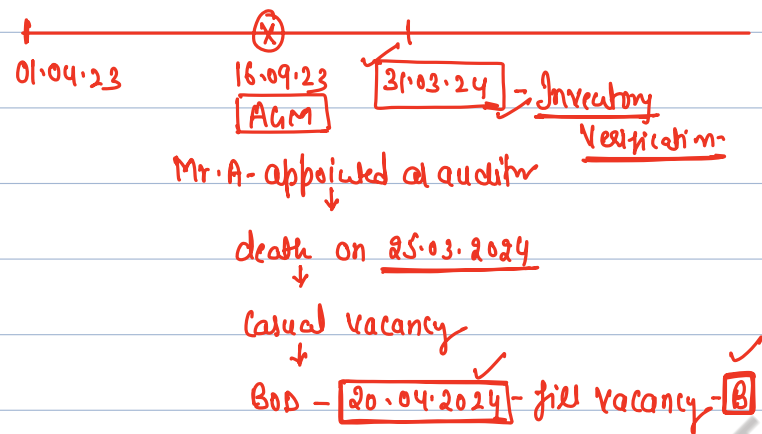 01.04.23 16.09.23 31.03.24 - Inventory
AGM Verification
Mr. A - appointed as auditor
death on 25.03.2024
Casual vacancy
BOD - 20.04.2024 - fill vacancy - B